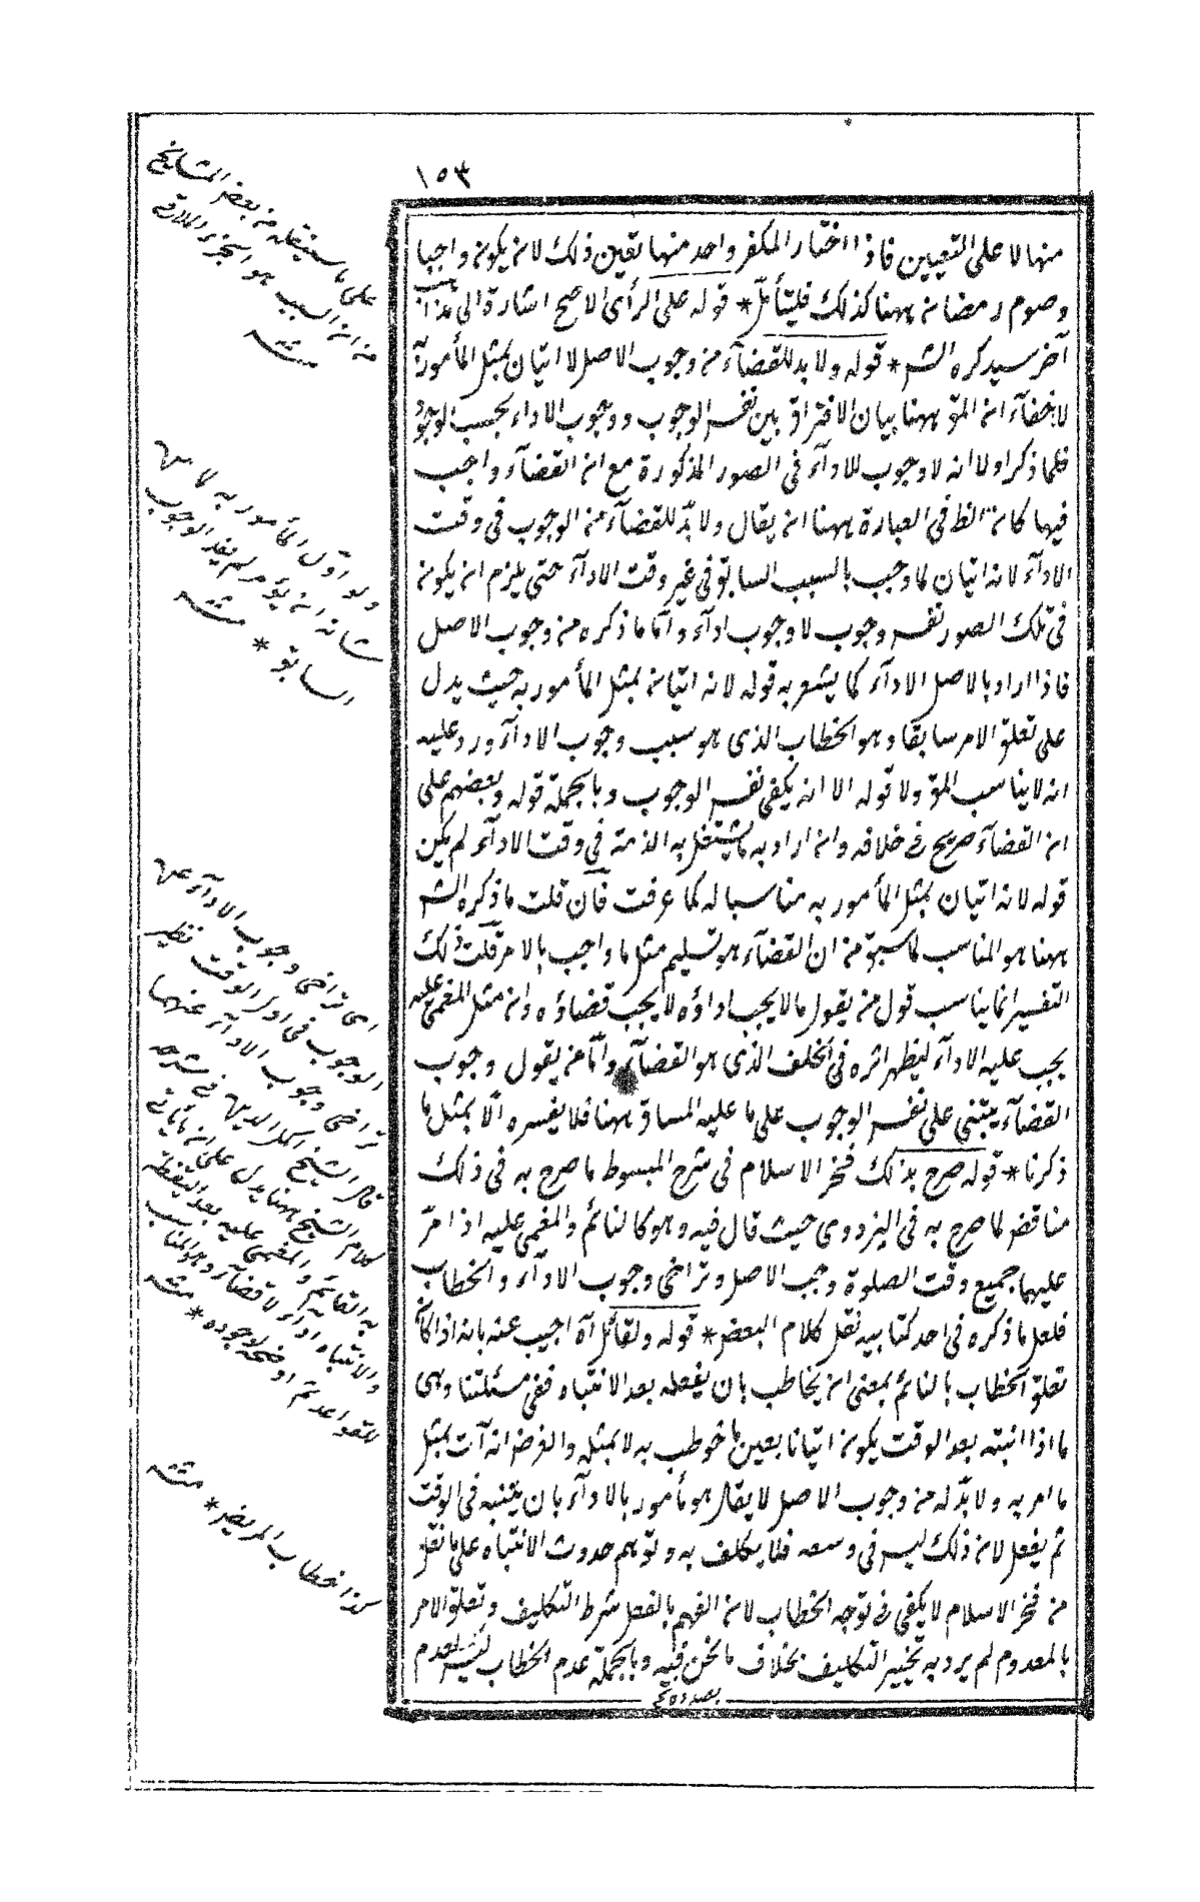 ١٥٣
منها لا على التعيين فاذا اختار المكفر واحد منها تعين ذلك لان يكون واجبا
وصوم رمضان ههنا كذلك فليتأمل * قوله على الرأى الاصح اشارة الى مذهب
آخر سيذكره الشم * قوله ولا بد للقضاء من وجوب الاصل لا اتيان بمثل المأمور به
لا خفاء ان المق ههنا بيان الافتراق بين نفس الوجوب ووجوب الاداء بحسب الوجود
فلما ذكر اولا انه لا وجوب للاداء فى الصور المذكورة مع ان القضاء واجب
فيها كان الظ فى العبارة ههنا ان يقال ولا بد للقضاء من الوجوب فى وقت
الاداء لانه اتيان لما وجب بالسبب السابق فى غير وقت الاداء حتى يلزم ان يكون
فى تلك الصور نفس وجوب لا وجوب اداء واما ما ذكره من وجوب الاصل
فاذا اراد بالاصل الاداء كما يشعر به قوله لانه اتيان بمثل المأمور به حيث يدل
على تعلق الامر سابقا وهو الخطاب الذى هو سبب وجوب الاداء ورد عليه
انه لا يناسب المق ولا قوله الا انه يكفى نفس الوجوب وبالجملة قوله وبعضهم على
ان القضاء صريح فى خلافه وان اراد به ما يشتغل به الذمة فى وقت الاداء لم يكن
قوله لانه اتيان بمثل المأمور به مناسبا له كما عرفت فان قلت ما ذكره الشم
ههنا هو المناسب لما سبق من ان القضاء هو تسليم مثل ما واجب بالامر قلت ذلك
التفسير انما يناسب قول من يقول ما لا يجب اداؤه لا يجب قضاؤه وان مثل المغمى عليه
يجب عليه الاداء ليظهر اثره فى الخلف الذى هو القضاء واما من يقول وجوب
القضاء يبتنى على نفس الوجوب على ما عليه المساق ههنا فلا يفسره الا بمثل ما
ذكرنا * قوله صرح بذلك فخر الاسلام فى شرح المبسوط ما صرح به فى ذلك
مناقض لما صرح به فى اليزدوى حيث قال فيه وهو كالنائم والمغمى عليه اذا مر
عليهما جميع وقت الصلوة وجب الاصل وتراخى وجوب الاداء والخطاب
فلعل ما ذكره فى احد كتابيه نقل كلام البعض * قوله ولقائل آه اجيب عنه بانه اذا كان
تعلق الخطاب بالنائم بمعنى ان يخاطب بان يفعله بعد الانتباه ففى مسئلتنا وهى
ما اذا انتبه بعد الوقت يكون اتيانا بعين ما خوطب به لا بمثله والغرض انه آت بمثل
ما امر به ولا بد له من وجوب الاصل لا يقال هو مأمور بالاداء بان يتنبه فى الوقت
ثم يفعل لان ذلك ليس فى وسعه فلا يكلف به وتوهم حدوث الانتباه على ما نقل
من فخر الاسلام لا يكفى فى توجه الخطاب لان الفهم بالفعل شرط التكليف وتعلق الامر
بالمعدوم لم يرد به تنجيز التكليف بخلاف ما نحن فيه وبالجملة عدم الخطاب ليس لعدم
على ما سينقله من بعض المشايخ
من ان السبب هو الجزء الملاقى
منه
ولو اول المأمور به بما من
شانه ان يؤمر لم يفد الوجوب
السابق * منه
اى تراخى وجوب الاداء عن
الوجوب فى اول الوقت نظير
تراخى وجوب الاداء عنهما
قال الشيخ اكمل الدين فى شرحه
كلام الشيخ ههنا يدل على ان ما يأتى
به النائم والمغمى عليه بعد اليقظة
والانتباه اداء لا قضاء وهو المناسب
للقواعد * منه
كذا خطاب المريض * منه